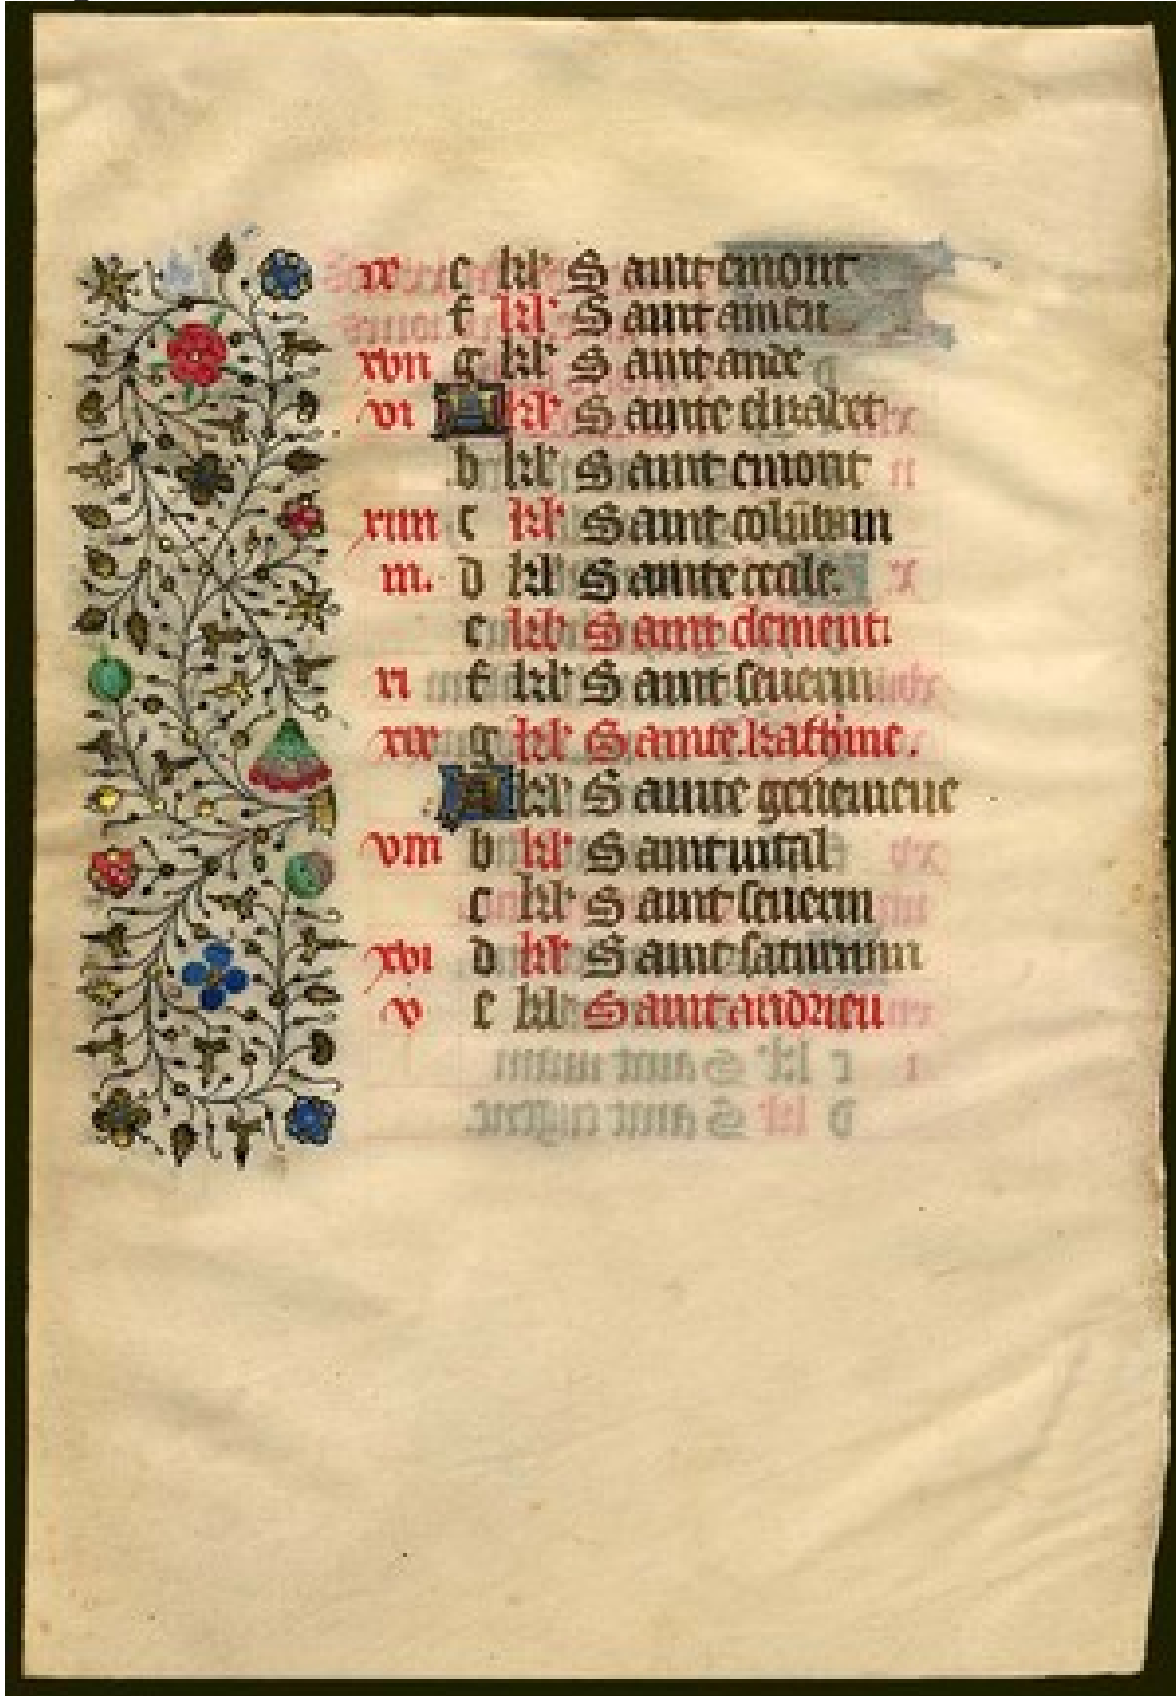 ix e kl' Saint emont
f kl' Saint amen
xvii g kl' Saint ande
vi A kl' Sainte elizabet
b kl' Saint emont
xiiii c kl' Saint colūbain
iii. d kl' Sainte cecile.
e kl' Saint clement.
xi f kl' Saint severin
xix g kl' Sainte. katherine.
A kl' Sainte genevieve
viii b kl' Saint vital
c kl' Saint severin
xvi d kl' Saint saturnin
v e kl' Saint andrieu